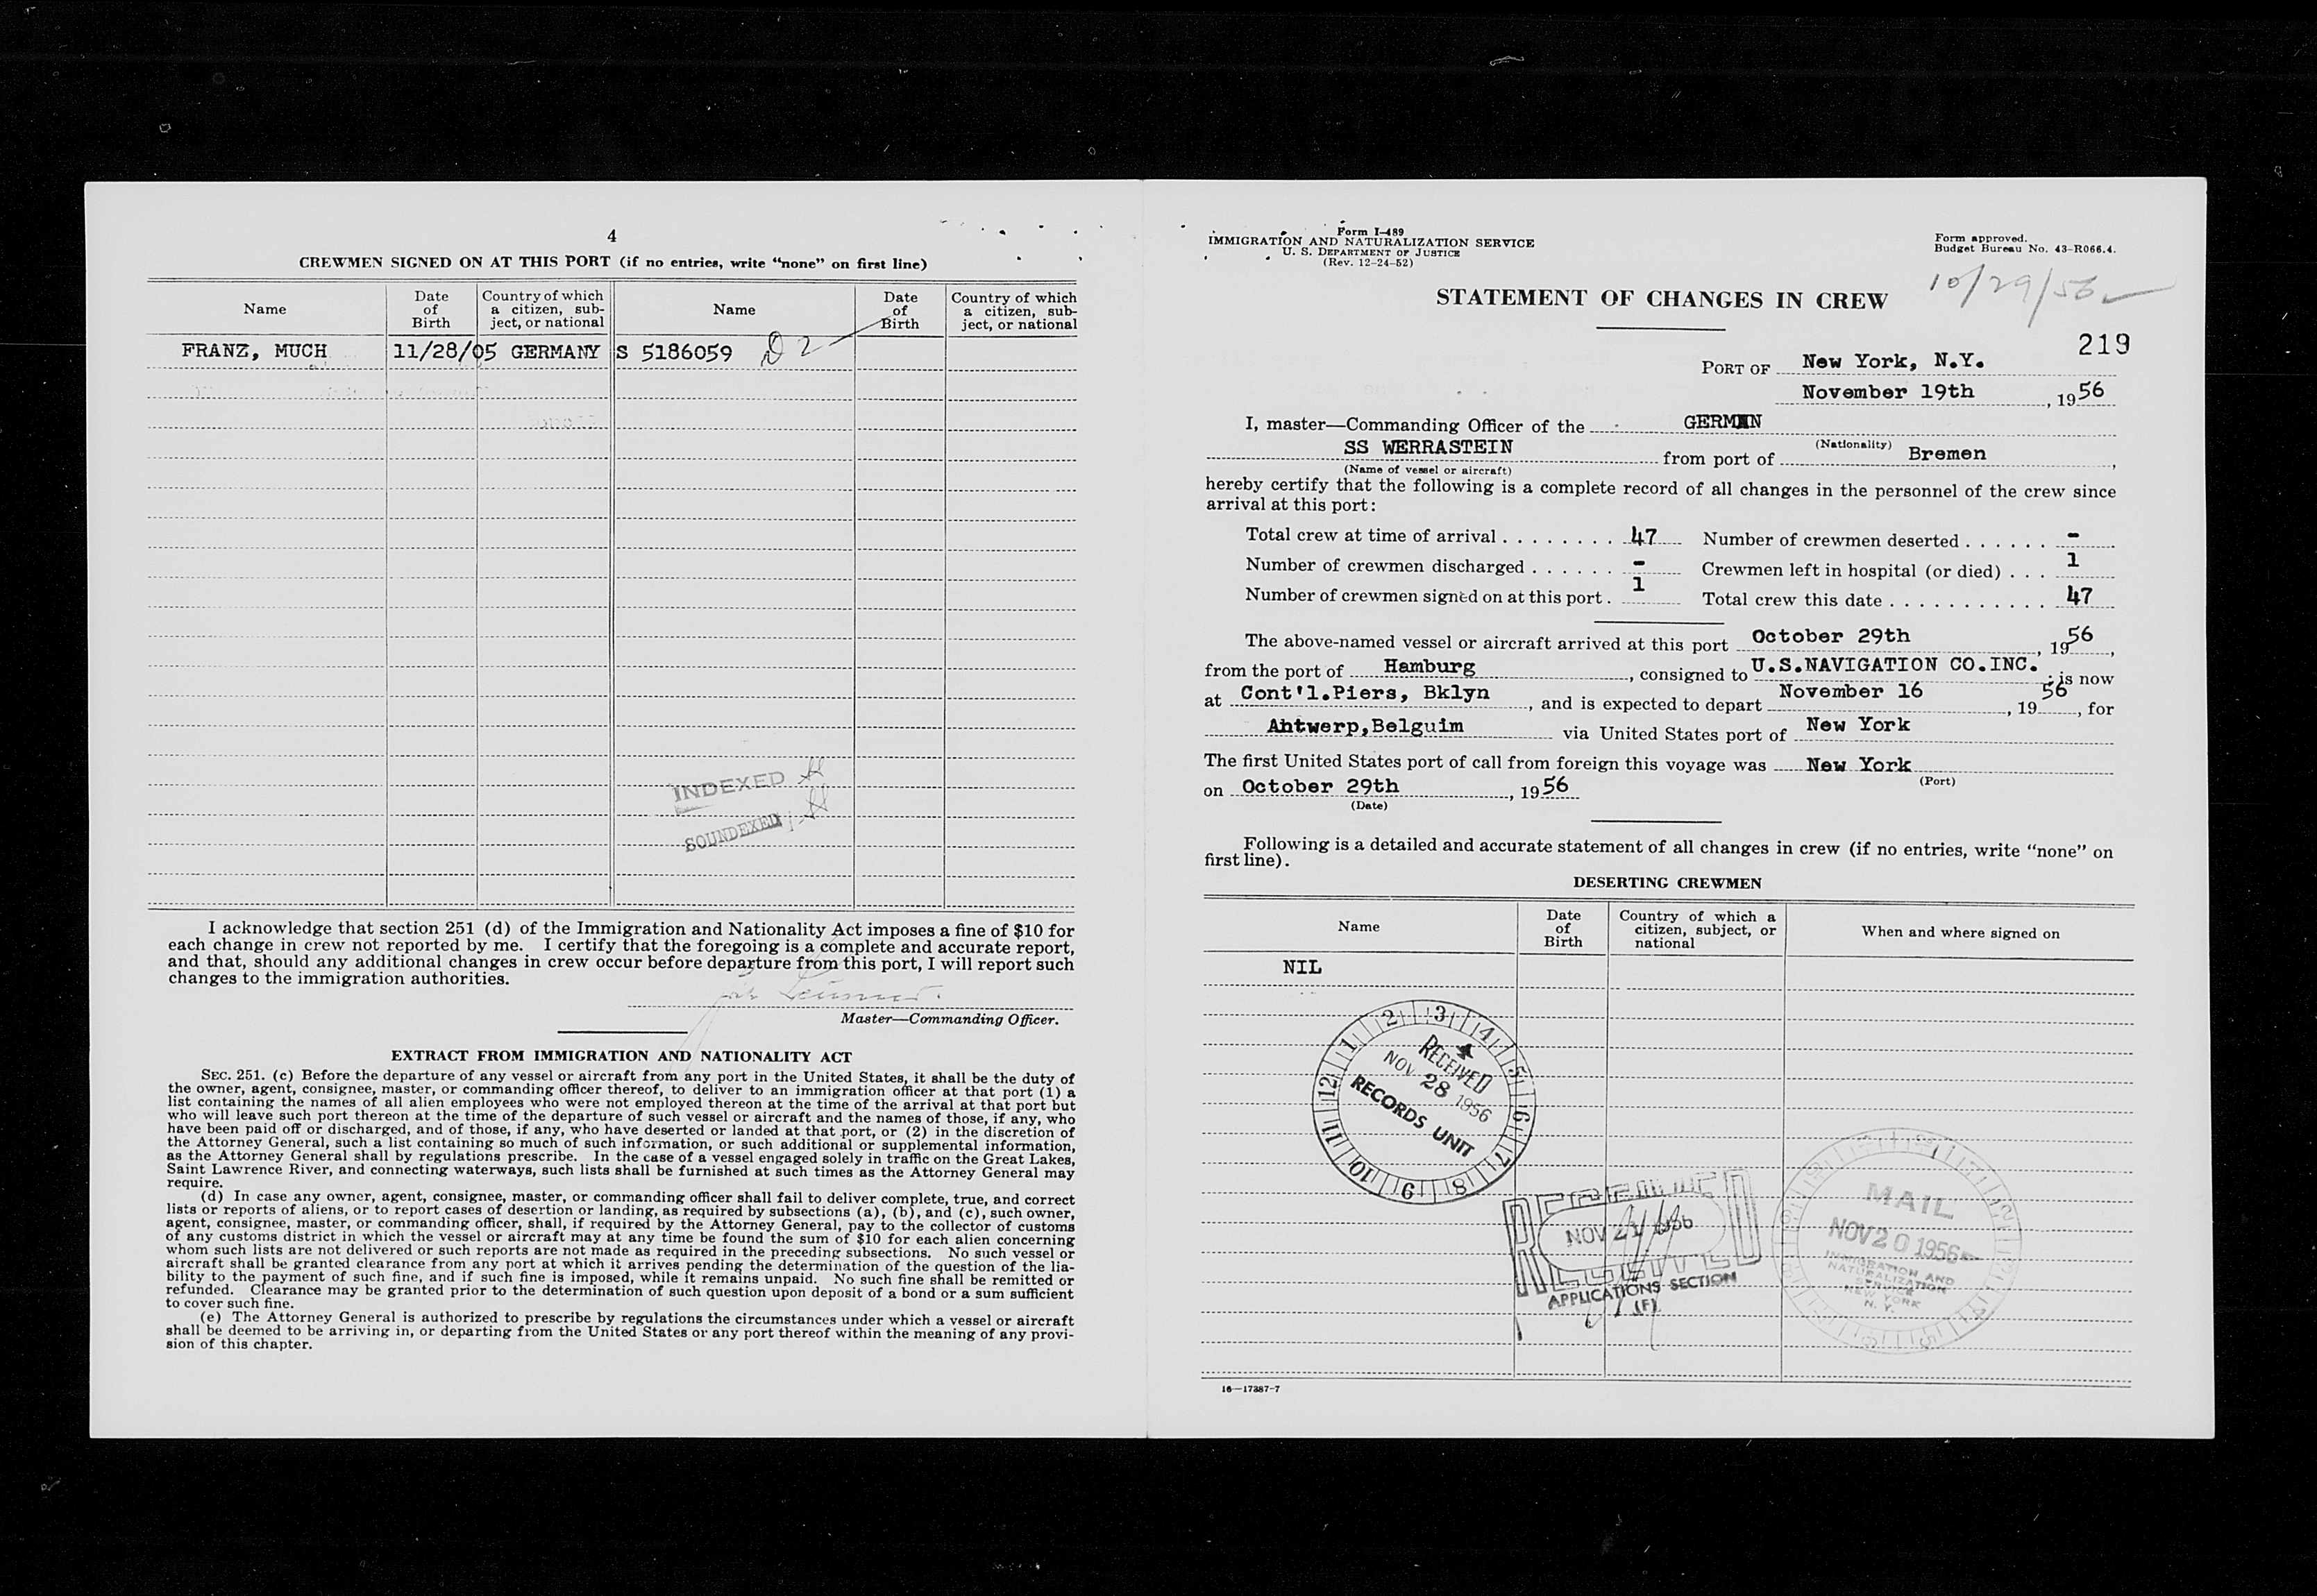 4
CREWMEN SIGNED ON AT THIS PORT (if no entries, write “none” on first line)
Name Date of Birth Country of which a citizen, sub-ject, or national Name Date of Birth Country of which a citizen, sub-ject, or national
FRANZ, MUCH 11/28/05 GERMANY S 5186059
INDEXED
SOUNDEXED
I acknowledge that section 251 (d) of the Immigration and Nationality Act imposes a fine of $10 for
each change in crew not reported by me. I certify that the foregoing is a complete and accurate report,
and that, should any additional changes in crew occur before departure from this port, I will report such
changes to the immigration authorities.
Master—Commanding Officer.
EXTRACT FROM IMMIGRATION AND NATIONALITY ACT
SEC. 251. (c) Before the departure of any vessel or aircraft from any port in the United States, it shall be the duty of
the owner, agent, consignee, master, or commanding officer thereof, to deliver to an immigration officer at that port (1) a
list containing the names of all alien employees who were not employed thereon at the time of the arrival at that port but
who will leave such port thereon at the time of the departure of such vessel or aircraft and the names of those, if any, who
have been paid off or discharged, and of those, if any, who have deserted or landed at that port, or (2) in the discretion of
the Attorney General, such a list containing so much of such information, or such additional or supplemental information,
as the Attorney General shall by regulations prescribe. In the case of a vessel engaged solely in traffic on the Great Lakes,
Saint Lawrence River, and connecting waterways, such lists shall be furnished at such times as the Attorney General may
require.
(d) In case any owner, agent, consignee, master, or commanding officer shall fail to deliver complete, true, and correct
lists or reports of aliens, or to report cases of desertion or landing, as required by subsections (a), (b), and (c), such owner,
agent, consignee, master, or commanding officer, shall, if required by the Attorney General, pay to the collector of customs
of any customs district in which the vessel or aircraft may at any time be found the sum of $10 for each alien concerning
whom such lists are not delivered or such reports are not made as required in the preceding subsections. No such vessel or
aircraft shall be granted clearance from any port at which it arrives pending the determination of the question of the lia-
bility to the payment of such fine, and if such fine is imposed, while it remains unpaid. No such fine shall be remitted or
refunded. Clearance may be granted prior to the determination of such question upon deposit of a bond or a sum sufficient
to cover such fine.
(e) The Attorney General is authorized to prescribe by regulations the circumstances under which a vessel or aircraft
shall be deemed to be arriving in, or departing from the United States or any port thereof within the meaning of any provi-
sion of this chapter.
Form I-489
IMMIGRATION AND NATURALIZATION SERVICE
U. S. DEPARTMENT OF JUSTICE
(Rev. 12-24-52)
Form approved.
Budget Bureau No. 43-R066.4.
10/29/56
STATEMENT OF CHANGES IN CREW
219
PORT OF New York, N.Y.
November 19th, 1956
I, master—Commanding Officer of the GERMAN
(Nationality)
SS WERRASTEIN from port of Bremen,
(Name of vessel or aircraft)
hereby certify that the following is a complete record of all changes in the personnel of the crew since
arrival at this port:
Total crew at time of arrival ........ 47 Number of crewmen deserted ...... -
Number of crewmen discharged ...... - Crewmen left in hospital (or died) ... 1
Number of crewmen signed on at this port . 1 Total crew this date ........... 47
The above-named vessel or aircraft arrived at this port October 29th, 1956,
from the port of Hamburg, consigned to U.S.NAVIGATION CO.INC. ; is now
at Cont'l.Piers, Bklyn, and is expected to depart November 16, 1956, for
Antwerp,Belguim via United States port of New York
The first United States port of call from foreign this voyage was New York
(Port)
on October 29th, 1956
(Date)
Following is a detailed and accurate statement of all changes in crew (if no entries, write “none” on
first line).
DESERTING CREWMEN
Name Date of Birth Country of which a citizen, subject, or national When and where signed on
NIL
1 2 3 4 5 6 7 8 9 10 11 12
RECEIVED
NOV 28 1956
RECORDS UNIT
RECEIVED
NOV 21 1956
APPLICATIONS SECTION
(F)
MAIL
NOV 20 1956
IMMIGRATION AND
NATURALIZATION
SERVICE
NEW YORK
N. Y.
16—17387-7